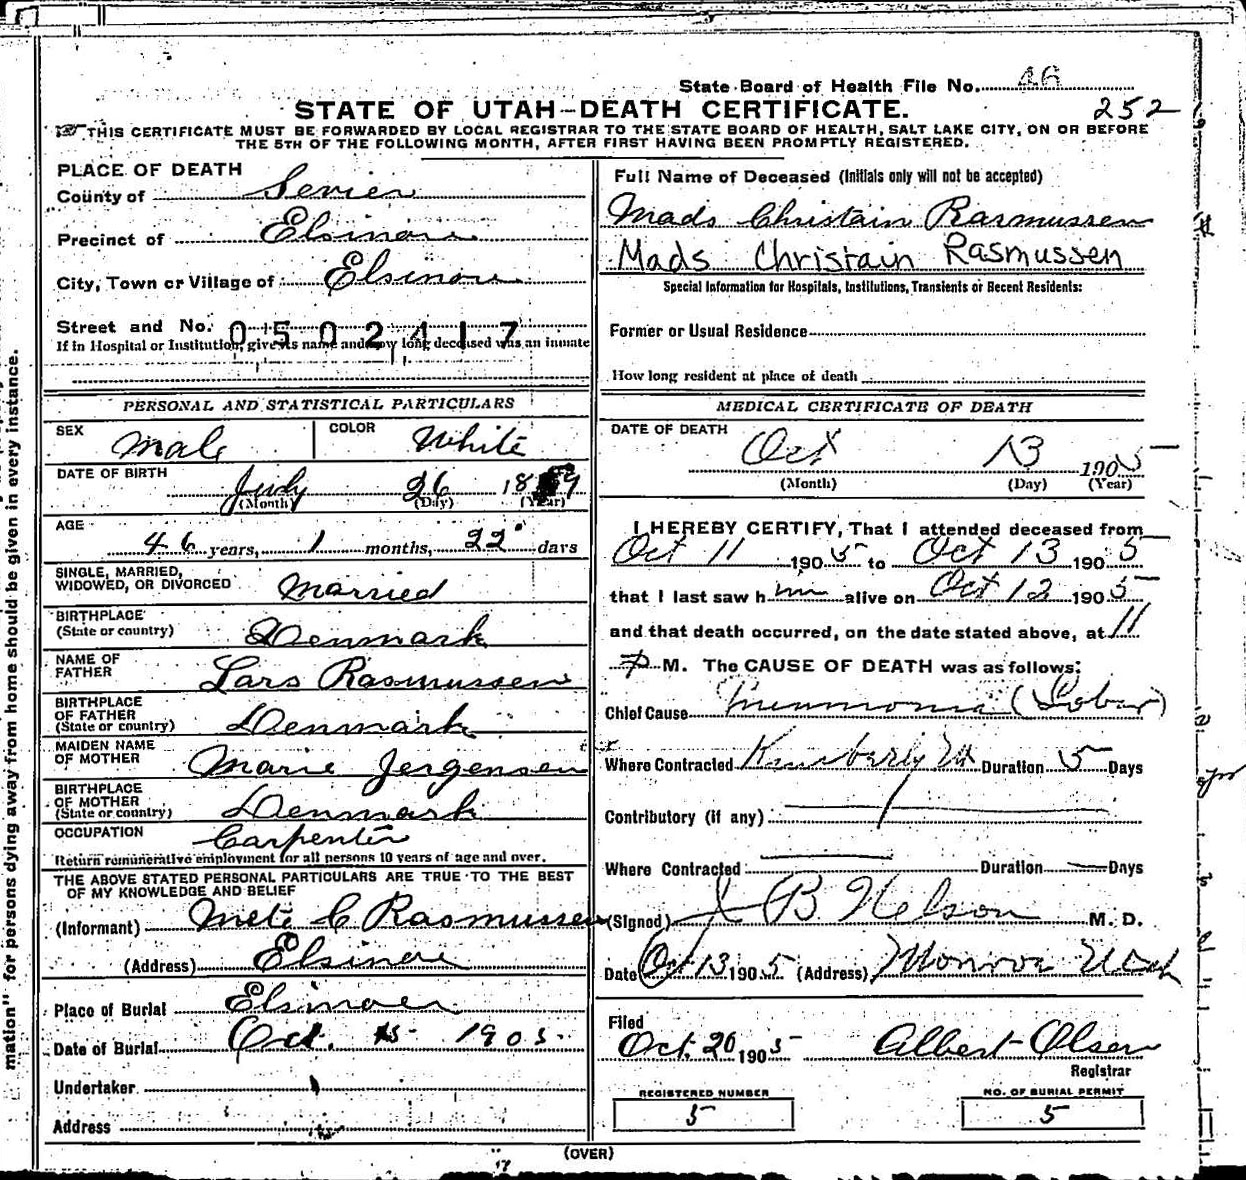 State Board of Health File No. 46
STATE OF UTAH—DEATH CERTIFICATE.
252
THIS CERTIFICATE MUST BE FORWARDED BY LOCAL REGISTRAR TO THE STATE BOARD OF HEALTH, SALT LAKE CITY, ON OR BEFORE
THE 5TH OF THE FOLLOWING MONTH, AFTER FIRST HAVING BEEN PROMPTLY REGISTERED.
PLACE OF DEATH
County of Sevier
Precinct of Elsinore
City, Town or Village of Elsinore
Street and No.
0502417
If in Hospital or Institution, give its name and how long deceased was an inmate
PERSONAL AND STATISTICAL PARTICULARS
SEX Male COLOR White
DATE OF BIRTH July 26 18 9
(Month) (Day) (Year)
AGE 46 years, 1 months, 22 days
SINGLE, MARRIED,
WIDOWED, OR DIVORCED Married
BIRTHPLACE
(State or country) Denmark
NAME OF
FATHER Lars Rasmussen
BIRTHPLACE
OF FATHER
(State or country) Denmark
MAIDEN NAME
OF MOTHER Marie Jergensen
BIRTHPLACE
OF MOTHER
(State or country) Denmark
OCCUPATION Carpenter
Return remunerative employment for all persons 10 years of age and over.
THE ABOVE STATED PERSONAL PARTICULARS ARE TRUE TO THE BEST
OF MY KNOWLEDGE AND BELIEF
(Informant) Mete C Rasmussen
(Address) Elsinore
Place of Burial Elsinore
Date of Burial Oct. 15 1905.
Undertaker
Address
Full Name of Deceased (Initials only will not be accepted)
Mads Christain Rasmussen
Mads Christain Rasmussen
Special Information for Hospitals, Institutions, Transients or Recent Residents:
Former or Usual Residence
How long resident at place of death
MEDICAL CERTIFICATE OF DEATH
DATE OF DEATH
Oct 13 1905
(Month) (Day) (Year)
I HEREBY CERTIFY, That I attended deceased from
Oct 11 1905 to Oct 13 1905
that I last saw him alive on Oct 12 1905
and that death occurred, on the date stated above, at 11
P M. The CAUSE OF DEATH was as follows:
Chief Cause Pneumonia (Lobar)
Where Contracted Kimberly Ut Duration 5 Days
Contributory (if any)
Where Contracted Duration Days
(Signed) J B Nelson M. D.
Date Oct 13 1905 (Address) Monroe Utah
Filed
Oct. 20 1905 Albert Olsen
Registrar
REGISTERED NUMBER
5
NO. OF BURIAL PERMIT
5
(OVER)
mation" for persons dying away from home should be given in every instance.